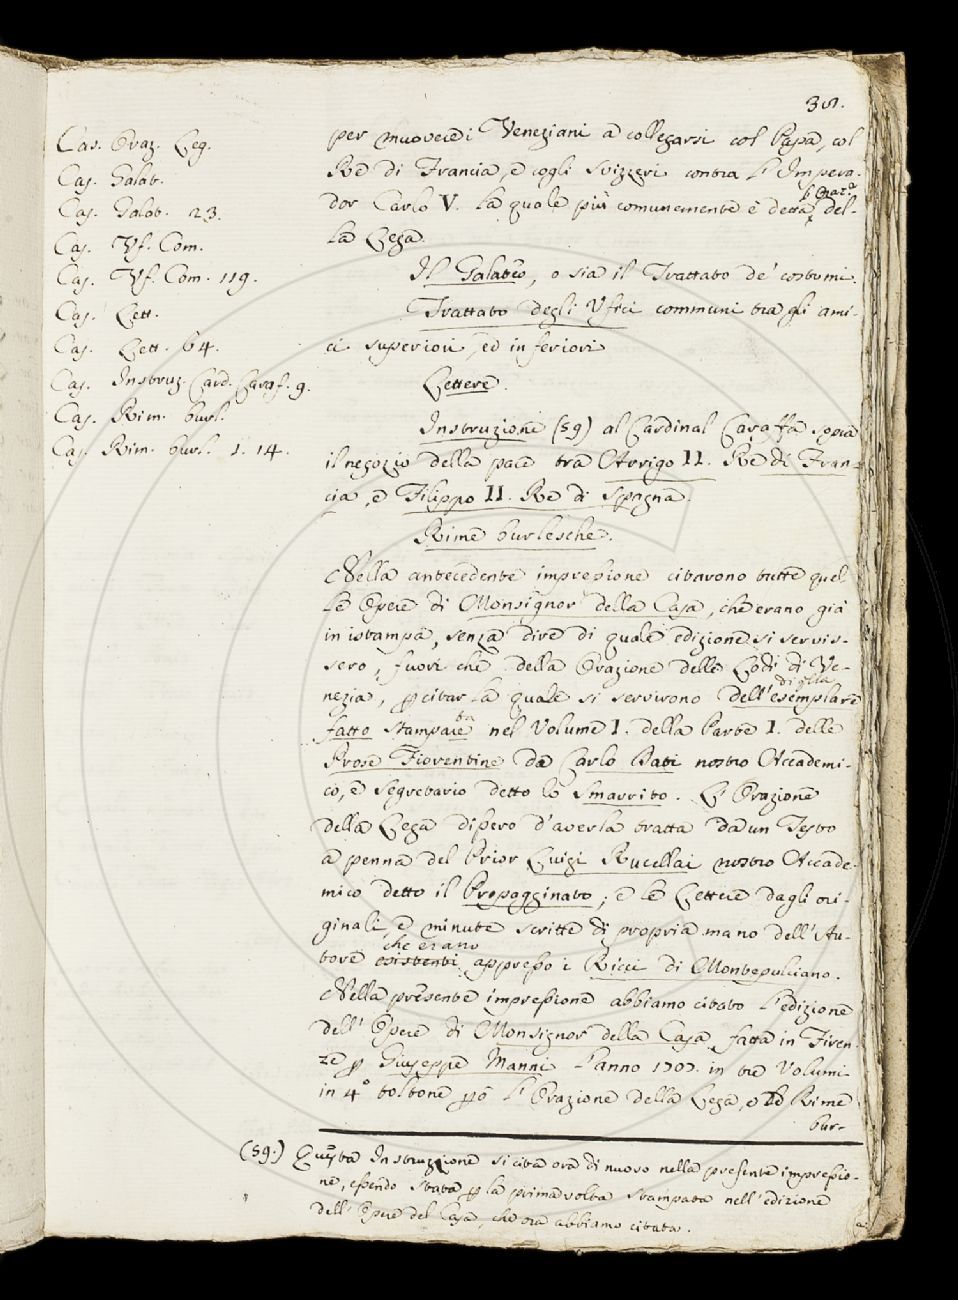 Cas. Oraz. Leg.
Cas. Galat.
Cas. Galat. 23.
Cas. Uf. Com.
Cas. Uf. Com. 119.
Cas. Lett.
Cas. Lett. 64.
Cas. Instruz. Card. Caraf. 9.
Cas. Rim. burl.
Cas. Rim. burl. 1. 14.
per muovere i Veneziani a collegarsi col Papa, col
Re di Francia, e cogli Svizzeri contra l'Impera-
dor Carlo V. la quale più comunemente è detta l'Oraz.e del-
la Lega.
Il Galateo, o sia il Trattato de' costumi.
Trattato degli Ufici communi tra gli ami-
ci superiori, ed inferiori
Lettere.
Instruzione (59) al Cardinal Caraffa sopra
il negozio della pace tra Arrigo II. Re di Fran-
cia, e Filippo II. Re di Spagna.
Rime burlesche.
Nella antecedente impressione citarono tutte quel-
le Opere di Monsignor della Casa, che erano già
in istampa, senza dire di quale edizione si servis-
sero, fuori che della Orazione delle Lodi di Ve-
nezia, p citar la quale si servirono dell'esemplare
fatto stampare nel Volume I. della Parte I. delle
Prose Fiorentine da Carlo Dati nostro Accademi-
co, e Segretario detto lo Smarrito. L'Orazione
della Lega dissero d'averla tratta da un Testo
a penna del Prior Luigi Rucellai nostro Accade-
mico detto il Propagginato; e le Lettere dagli ori-
ginali, e minute scritte di propria mano dell'Au-
che erano
tore esistenti appresso i Ricci di Montepulciano.
Nella presente impressione abbiamo citato l'edizione
dell'Opere di Monsignor della Casa, fatta in Firen-
ze p Giuseppe Manni l'anno 1707. in tre Volumi
in 4° toltone pò l'Orazione della Lega, e le Rime
bur-
(59.) Questa Instruzione si cita ora di nuovo nella presente impressio-
ne, essendo stata p la prima volta stampata nell'edizione
dell'Opere del Casa, che ora abbiamo citata.